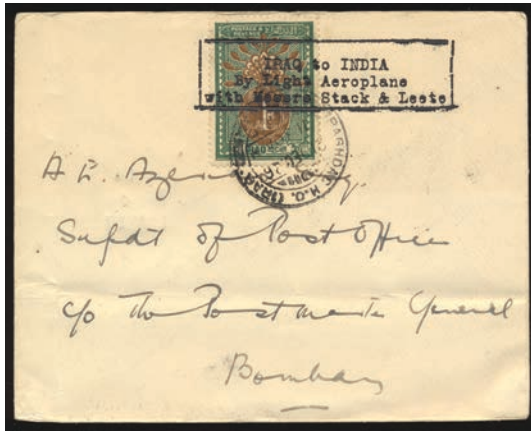 POSTAGE &
IRAQ to INDIA
By Light Aeroplane
with Messrs Stack & Leete
BAGHDAD H.O. (IRAQ)
A. E.
Supdt of Post Office
c/o The Postmaster General
Bombay